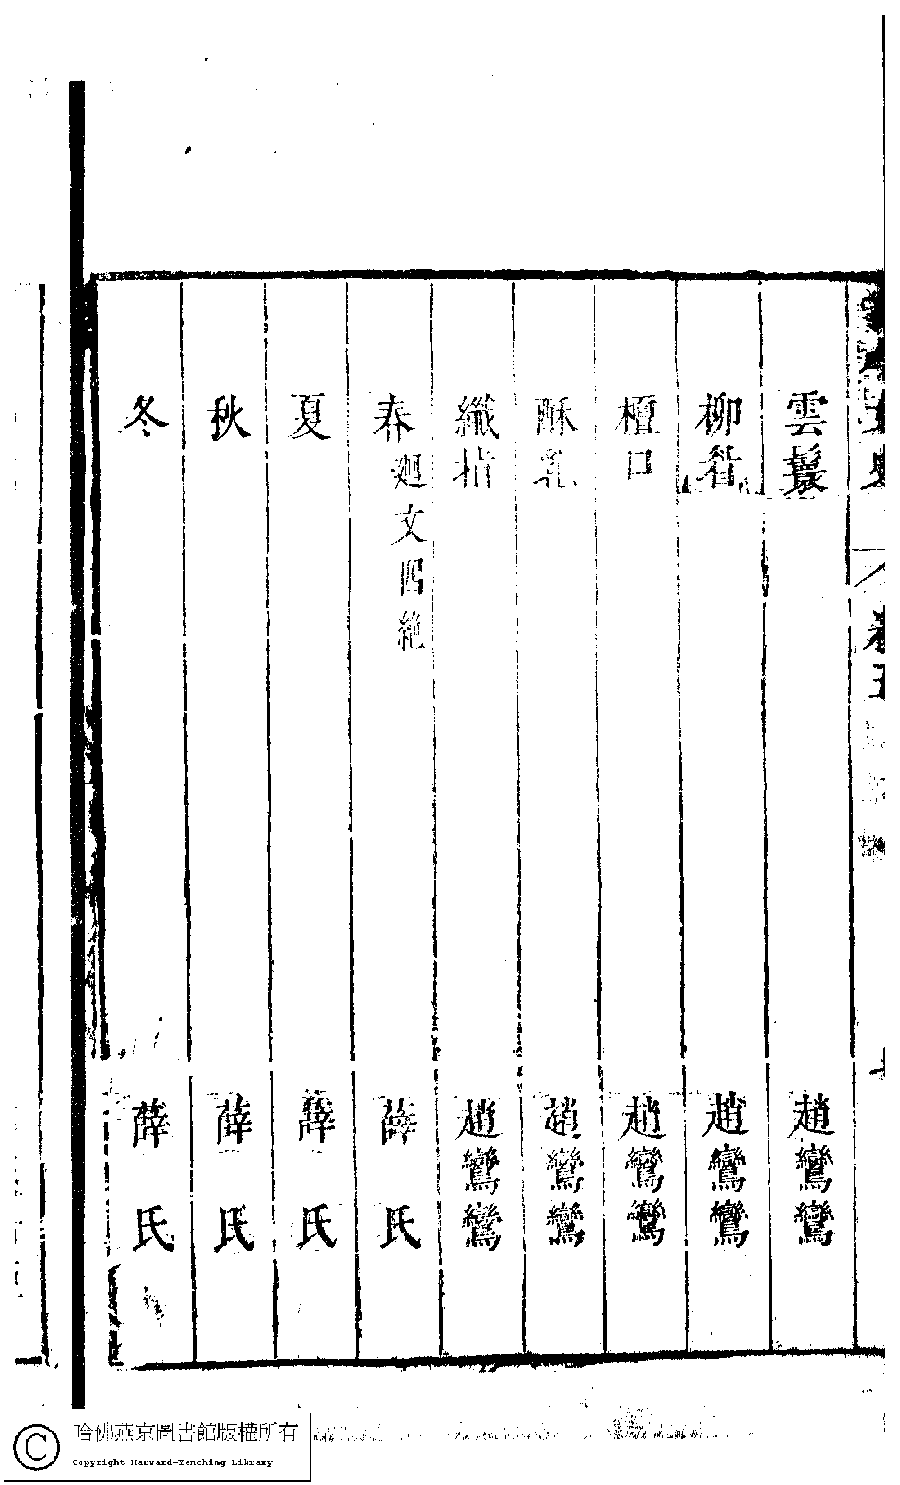 雲鬟 趙鸞鸞
柳眉 趙鸞鸞
檀口 趙鸞鸞
酥乳 趙鸞鸞
纖指 趙鸞鸞
春 廻文四絶 薛氏
夏 薛氏
秋 薛氏
冬 薛氏
哈佛燕京圖書館版權所有
Copyright Harvard-Yenching Library